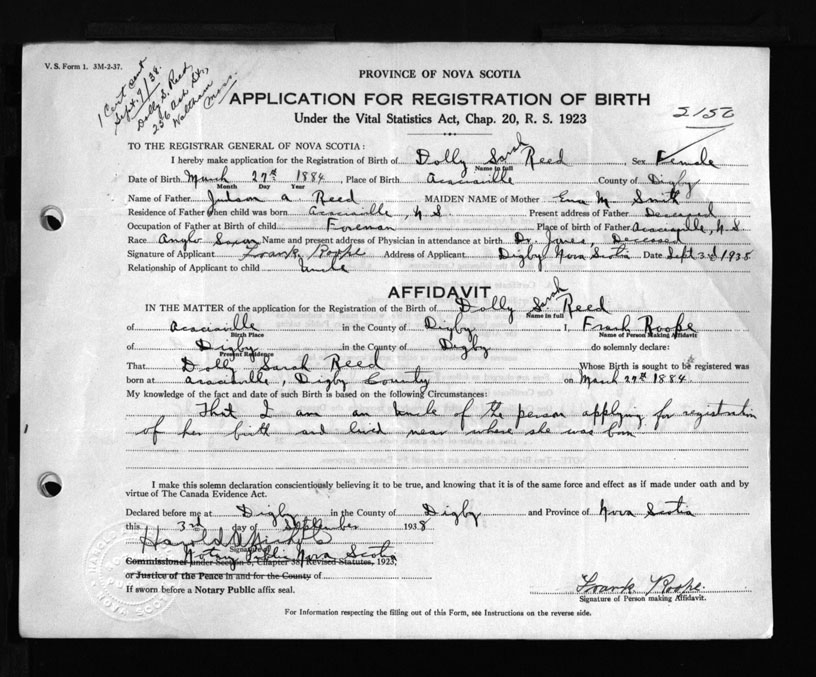 V. S. Form 1. 3M-2-37.
1 Cert sent
Sept. 9/38.
Dolly S. Reed,
256 Ash St.,
Waltham
Mass.
PROVINCE OF NOVA SCOTIA
APPLICATION FOR REGISTRATION OF BIRTH
Under the Vital Statistics Act, Chap. 20, R. S. 1923
5150
TO THE REGISTRAR GENERAL OF NOVA SCOTIA:
I hereby make application for the Registration of Birth of Dolly Sarah Reed Sex Female
Name in full
Date of Birth March 27th 1884 Place of Birth Acaciaville County of Digby
Month Day Year
Name of Father Judson A. Reed MAIDEN NAME of Mother M. Smith
Residence of Father when child was born Acaciaville, N.S. Present address of Father Deceased
Occupation of Father at Birth of child Foreman Place of birth of Father Acaciaville, N.S.
Race Anglo Saxon Name and present address of Physician in attendance at birth Dr. Jones, Deceased
Signature of Applicant Frank Roope Address of Applicant Digby Nova Scotia Date Sept 3rd 1938
Relationship of Applicant to child Uncle
AFFIDAVIT
IN THE MATTER of the application for the Registration of the Birth of Dolly Sarah Reed
Name in full
of Acaciaville in the County of Digby I, Frank Roope
Birth Place Name of Person Making Affidavit
of Digby in the County of Digby do solemnly declare:
Present Residence
That Dolly Sarah Reed Whose Birth is sought to be registered was
born at Acaciaville, Digby County on March 27th 1884.
My knowledge of the fact and date of such Birth is based on the following Circumstances:
That I am an Uncle of the person applying for registration
of her birth and lived near where she was born
I make this solemn declaration conscientiously believing it to be true, and knowing that it is of the same force and effect as if made under oath and by
virtue of The Canada Evidence Act.
Declared before me at Digby in the County of Digby and Province of Nova Scotia
this 3rd day of September 1938
Harold
Signature of
Notary Public Nova Scotia
Commissioner under Section 6, Chapter 38, Revised Statutes, 1923,
or Justice of the Peace in and for the County of
If sworn before a Notary Public affix seal.
Frank Roope.
Signature of Person making Affidavit.
For Information respecting the filling out of this Form, see Instructions on the reverse side.